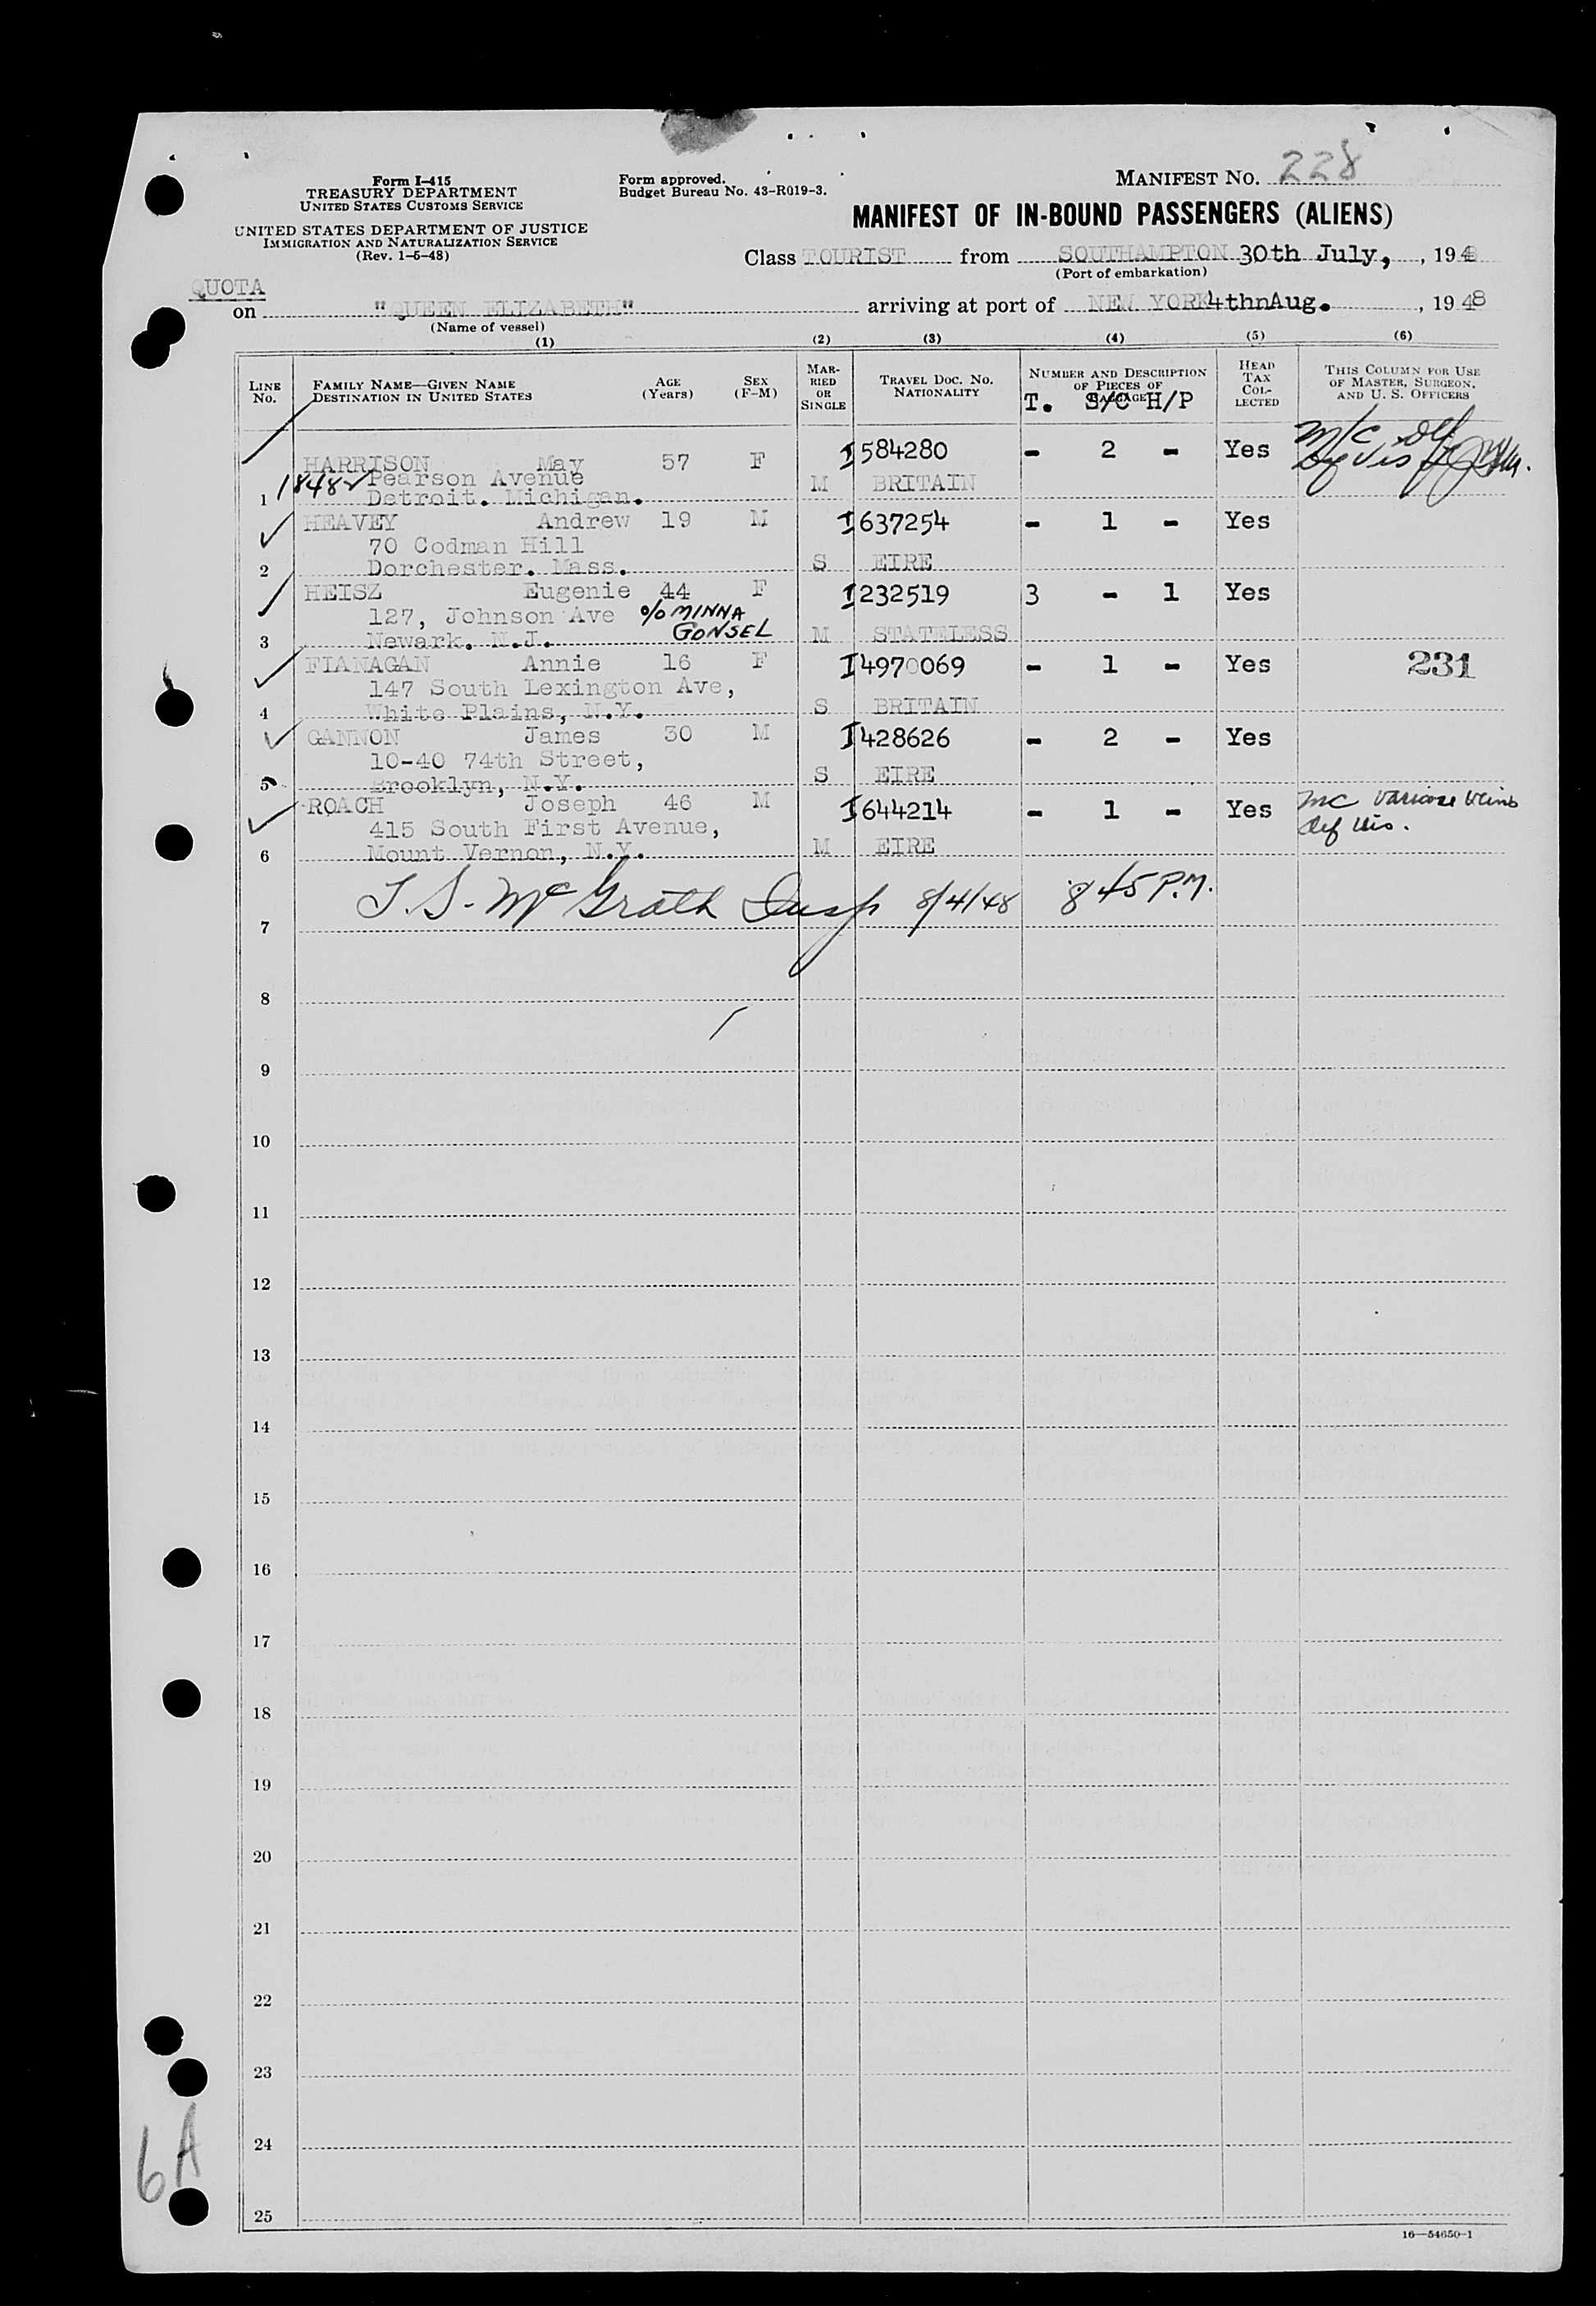 Form I-415
TREASURY DEPARTMENT
UNITED STATES CUSTOMS SERVICE
UNITED STATES DEPARTMENT OF JUSTICE
IMMIGRATION AND NATURALIZATION SERVICE
(Rev. 1-5-48)
Form approved.
Budget Bureau No. 43-R019-3.
MANIFEST NO. 228
MANIFEST OF IN-BOUND PASSENGERS (ALIENS)
Class TOURIST from SOUTHAMPTON 30th July, , 1948
(Port of embarkation)
QUOTA
on "QUEEN ELIZABETH" arriving at port of NEW YORK 4thnAug. , 1948
(Name of vessel)
(1) (2) (3) (4) (5) (6)
LINE No. FAMILY NAME—GIVEN NAME DESTINATION IN UNITED STATES AGE (Years) SEX (F-M) MARRIED OR SINGLE TRAVEL DOC. NO. NATIONALITY NUMBER AND DESCRIPTION OF PIECES OF BAGGAGE HEAD TAX COLLECTED THIS COLUMN FOR USE OF MASTER, SURGEON, AND U. S. OFFICERS
T. S/C H/P
HARRISON May 57 F I 584280 - 2 - Yes M/C Def
1848 Pearson Avenue M BRITAIN
1 Detroit. Michigan.
HEAVEY Andrew 19 M I 637254 - 1 - Yes
70 Codman Hill
2 Dorchester. Mass. S EIRE
HEISZ Eugenie 44 F I 232519 3 - 1 Yes
127, Johnson Ave c/o MINNA GONSEL
3 Newark. N.J. M STATELESS
FIANAGAN Annie 16 F I 4970069 - 1 - Yes 231
147 South Lexington Ave,
4 White Plains, N.Y. S BRITAIN
GANNON James 30 M I 428626 - 2 - Yes
10-40 74th Street,
5 Brooklyn, N.Y. S EIRE
ROACH Joseph 46 M I 644214 - 1 - Yes MC Varicose Veins
415 South First Avenue, def vis.
6 Mount Vernon, N.Y. M EIRE
T. S. McGrath Insp 8/4/48 8 45 P.M.
7
8
9
10
11
12
13
14
15
16
17
18
19
20
21
22
23
24
25
6A
16—54650-1